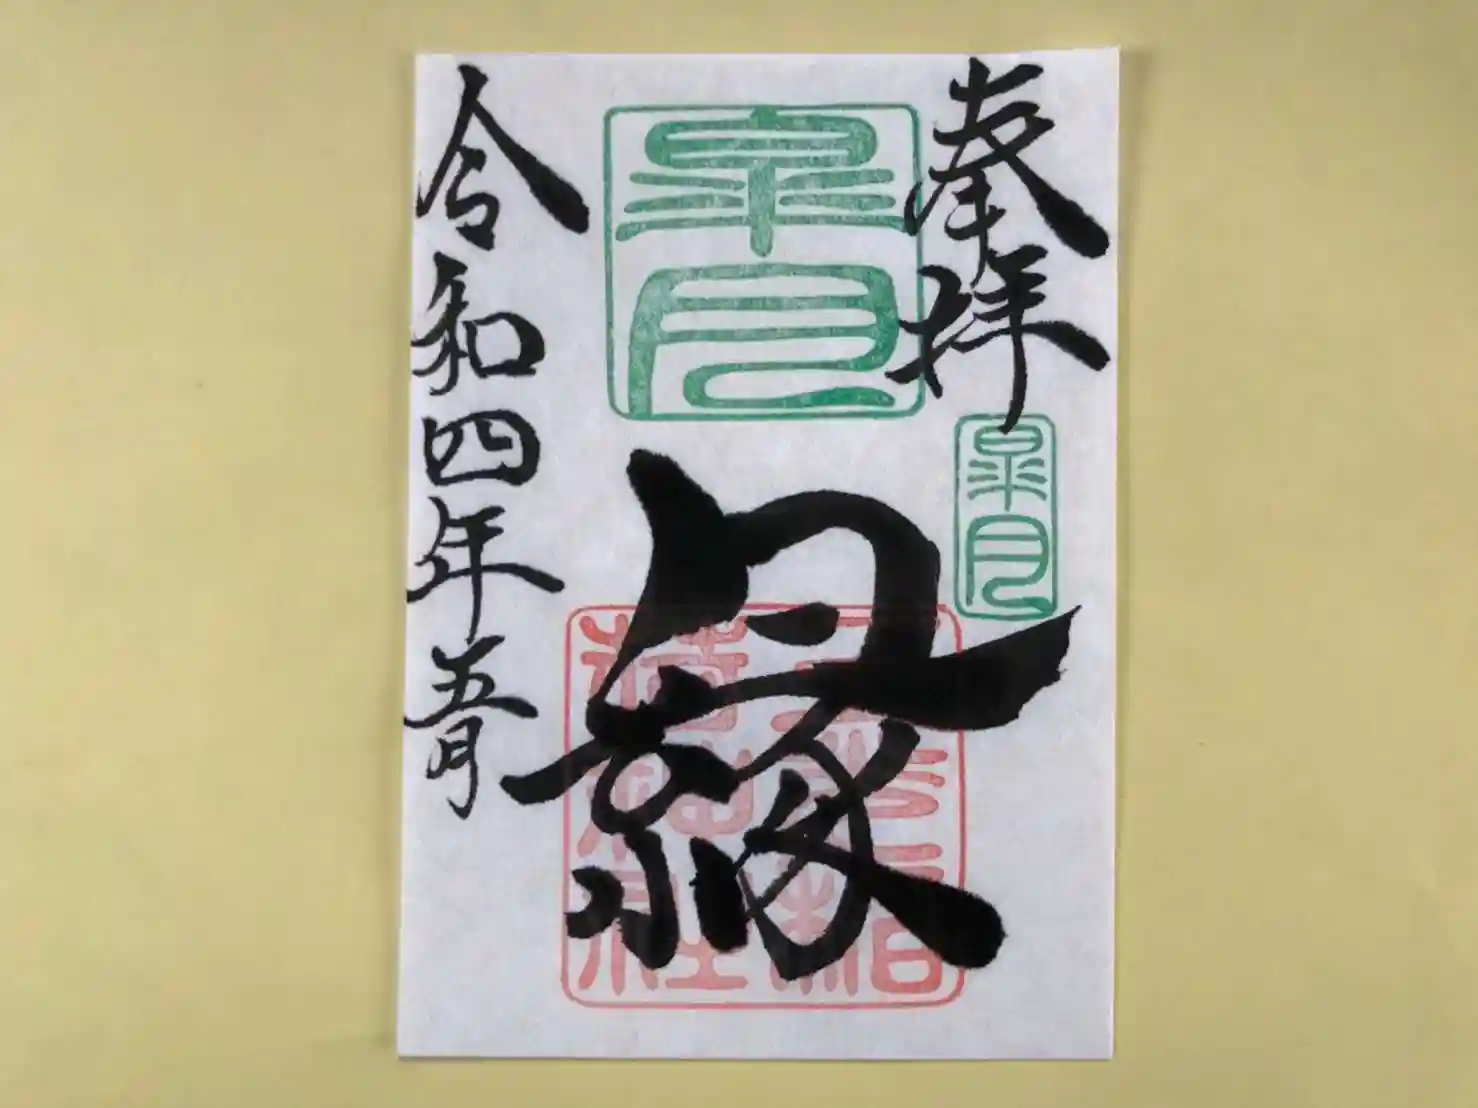 奉拝
皐月
皐月
縁
令和四年五月